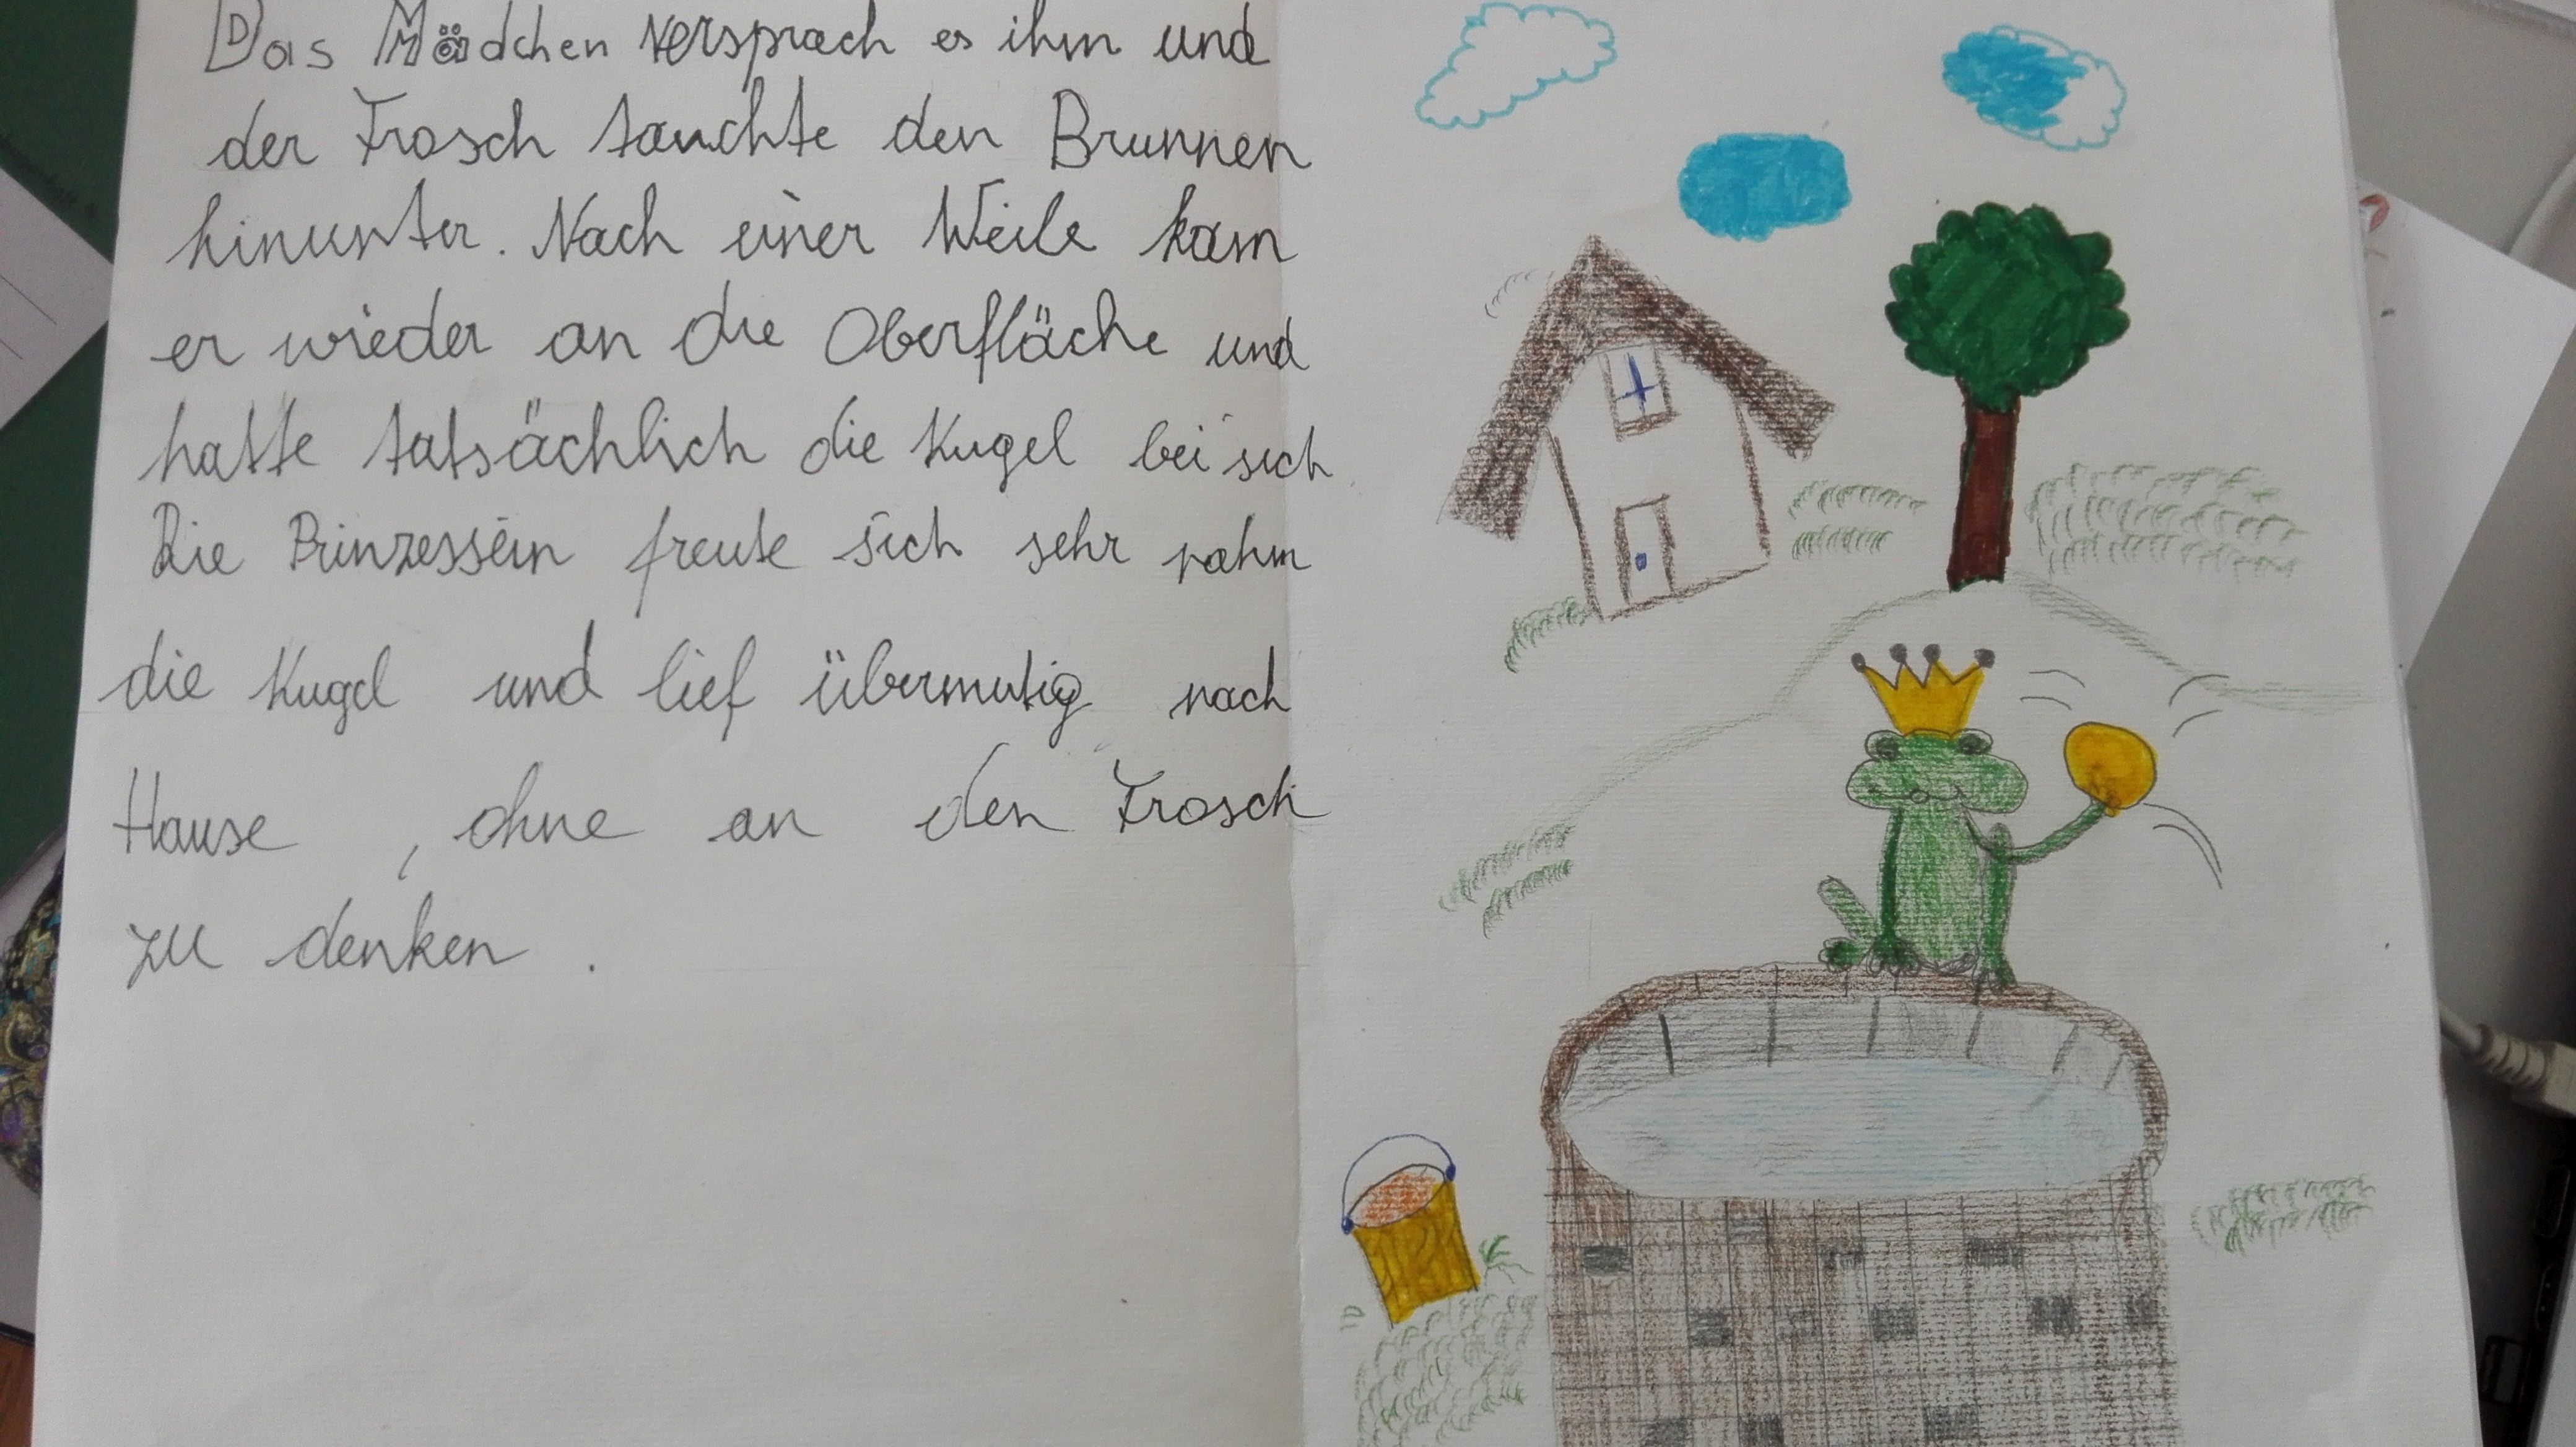 Das Mädchen versprach es ihm und
der Frosch tauchte den Brunnen
hinunter. Nach einer Weile kam
er wieder an die Oberfläche und
hatte tatsächlich die Kugel bei sich.
Die Prinzessin freute sich sehr nahm
die Kugel und lief übermutig nach
Hause , ohne an den Frosch
zu denken .